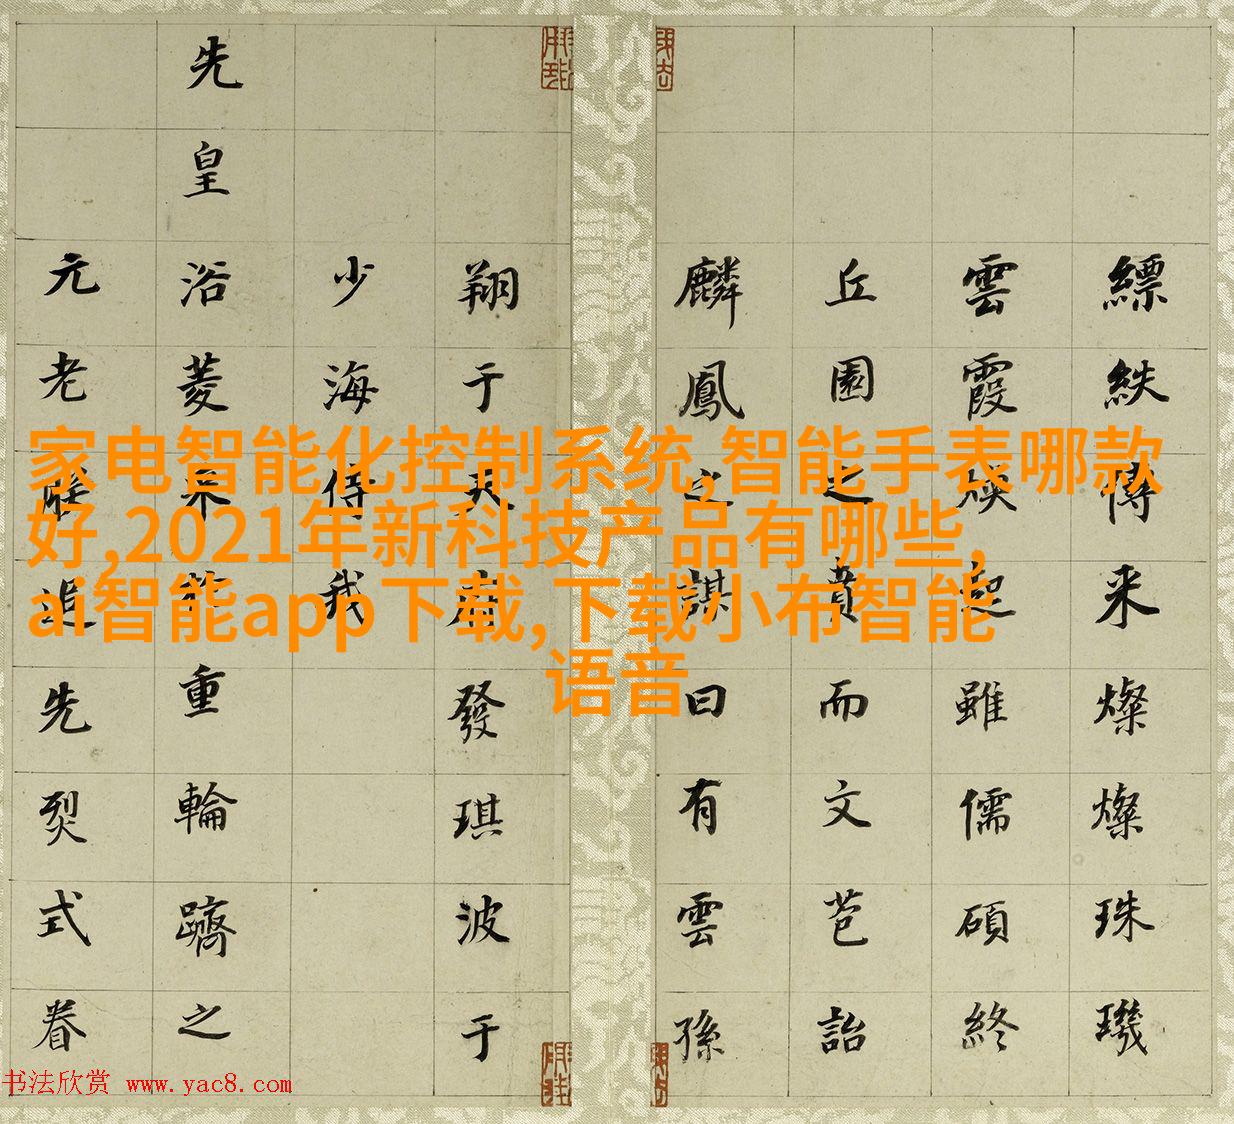 家电智能化控制系统,智能手表哪款
好,2021年新科技产品有哪些,
ai智能app下载,下载小布智能
语音
縹紩来燦燦珠璣
雲霞煥起雖儒碩終
丘園之賁而文芭詒
麟鳳之謀曰有雲孫
翔于天府發琪波于
少海侍我
先皇浴菱重輪躋之
元老追先烈式眷
书法欣赏 www.yac8.com